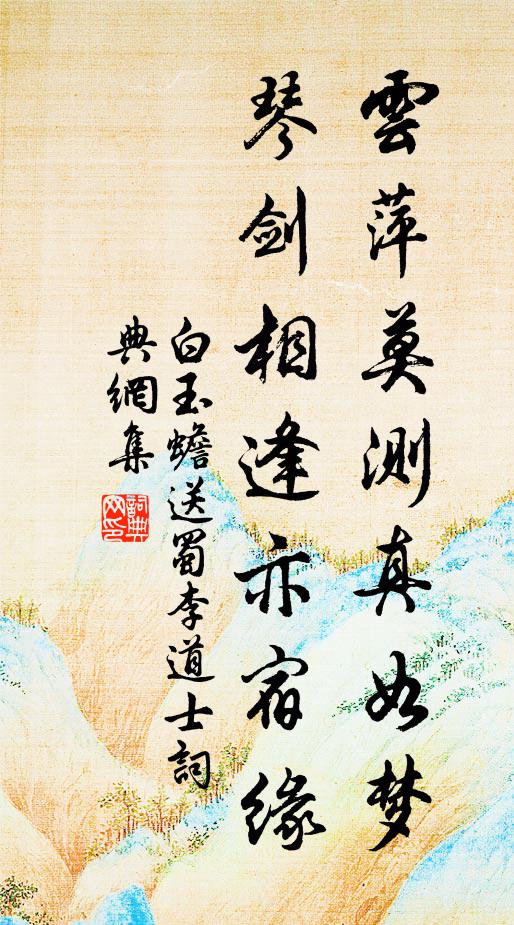 雲萍莫測真如梦
琴剑相逢亦宿緣
白玉蟾送蜀李道士詞
典網集
詞典網印